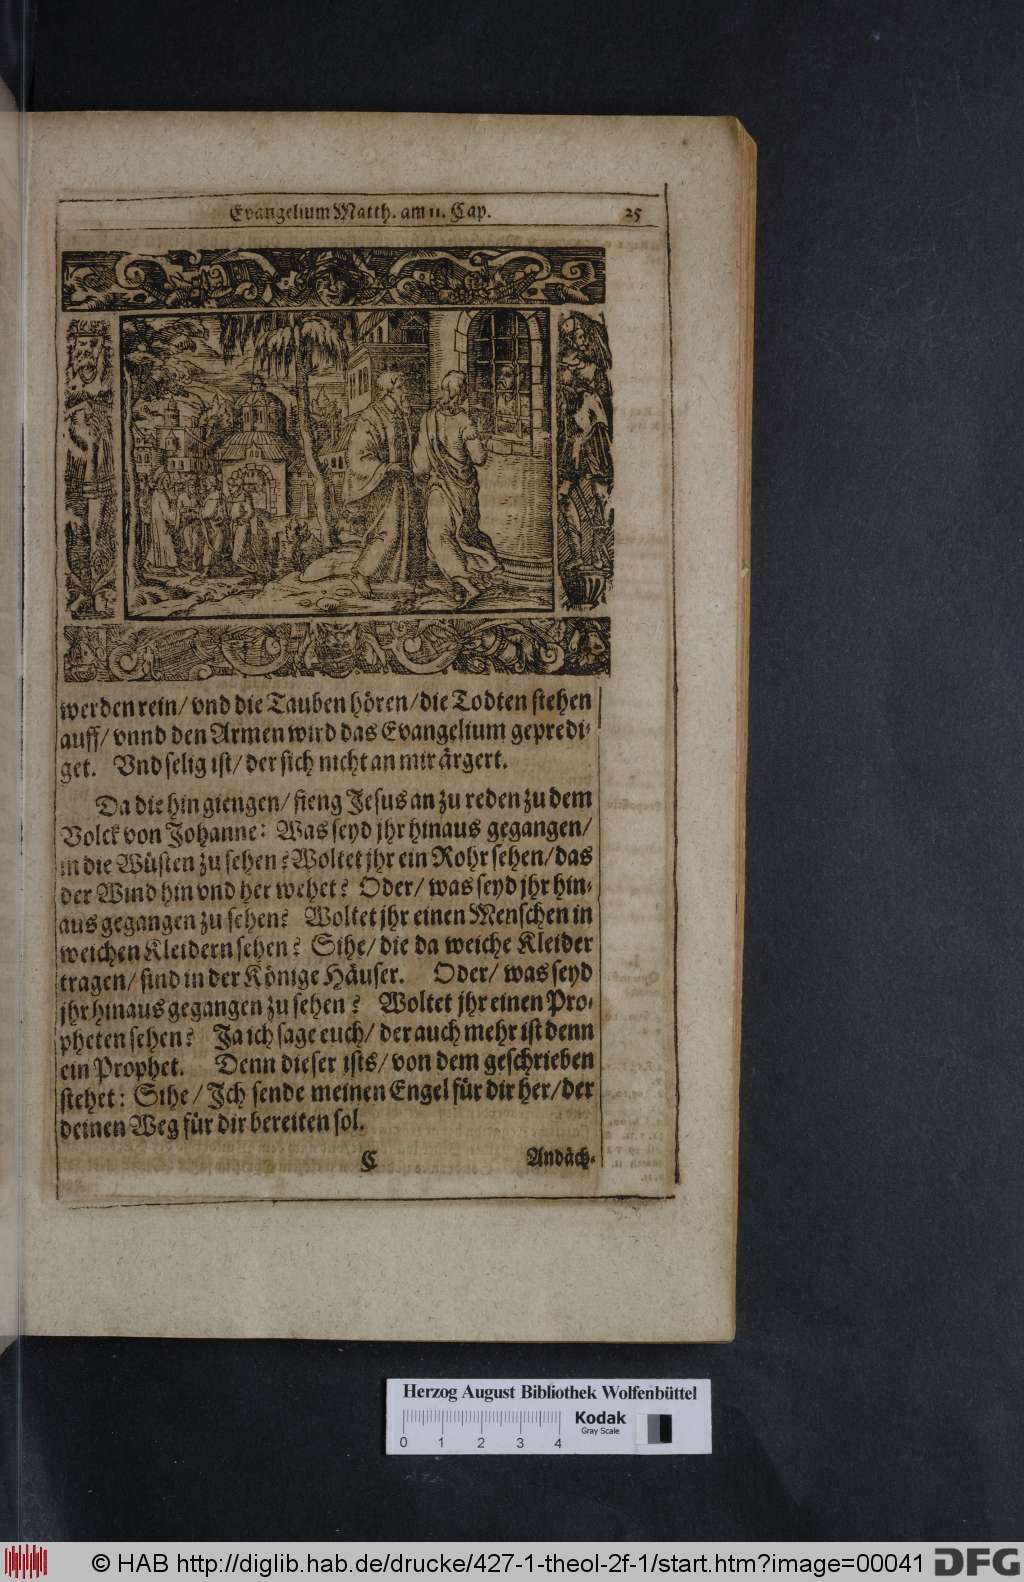 Evangelium Matth. am 11. Cap. 25
werden rein/ vnd die Tauben hören/ die Todten stehen
auff/ vnnd den Armen wird das Evangelium gepredi-
get. Vnd selig ist/ der sich nicht an mir ärgert.
Da die hin giengen/ fieng Jesus an zu reden zu dem
Volck von Johanne: Was seyd jhr hinaus gegangen/
in die Wüsten zu sehen? Woltet jhr ein Rohr sehen/ das
der Wind hin vnd her wehet? Oder/ was seyd jhr hin-
aus gegangen zu sehen? Woltet jhr einen Menschen in
weichen Kleidern sehen? Sihe/ die da weiche Kleider
tragen/ sind in der Könige Häuser. Oder/ was seyd
jhr hinaus gegangen zu sehen? Woltet jhr einen Pro-
pheten sehen? Ja ich sage euch/ der auch mehr ist denn
ein Prophet. Denn dieser ists/ von dem geschrieben
stehet: Sihe/ Jch sende meinen Engel für dir her/ der
deinen Weg für dir bereiten sol.
C Andäch-
Herzog August Bibliothek Wolfenbüttel
Kodak
Gray Scale
0 1 2 3 4
© HAB http://diglib.hab.de/drucke/427-1-theol-2f-1/start.htm?image=00041 DFG